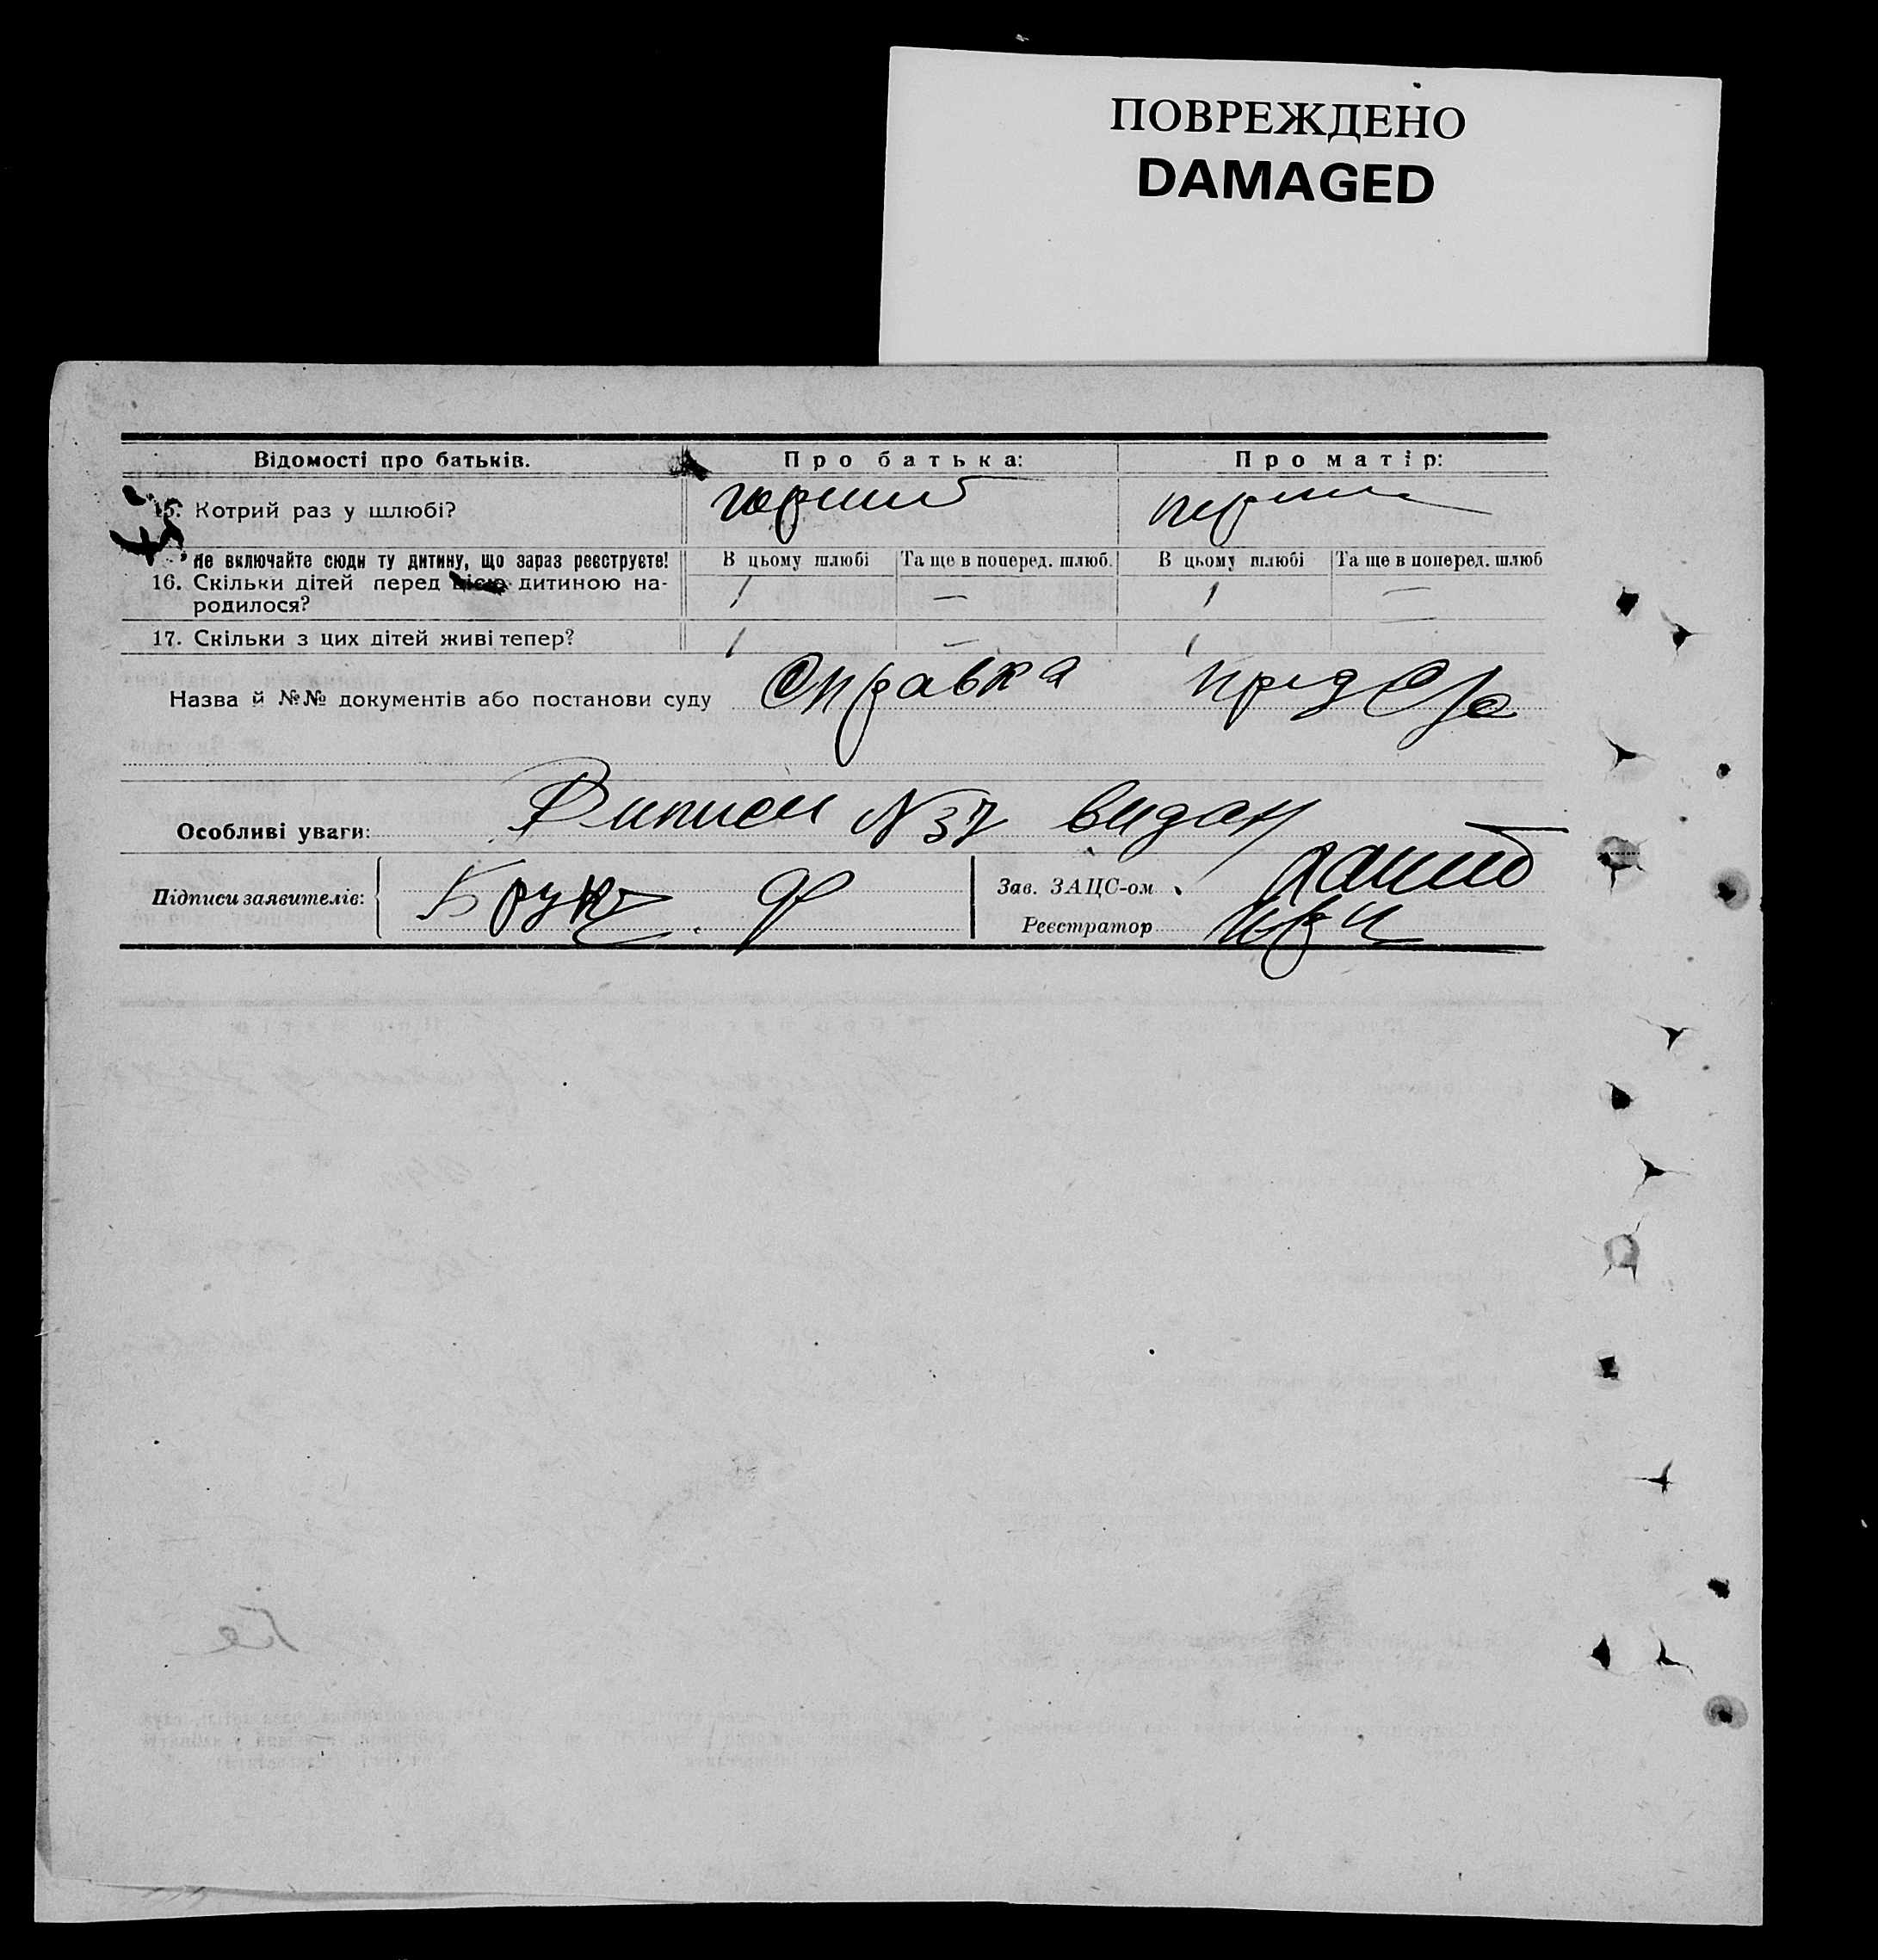 ПОВРЕЖДЕНО
DAMAGED
Відомості про батьків. Про батька: Про матір:
15. Котрий раз у шлюбі? перший перший
Не включайте сюди ту дитину, що зараз реєструєте! В цьому шлюбі Та ще в поперед. шлюб. В цьому шлюбі Та ще в поперед. шлюб
16. Скільки дітей перед цією дитиною на- 1 — 1 —
родилося?
17. Скільки з цих дітей живі тепер? 1 — 1
Назва й №№ документів або постанови суду Справка
Особливі уваги: Виписи N 37 видан
Підписи заявителів: Брук Зав. ЗАЦС-ом
Реєстратор